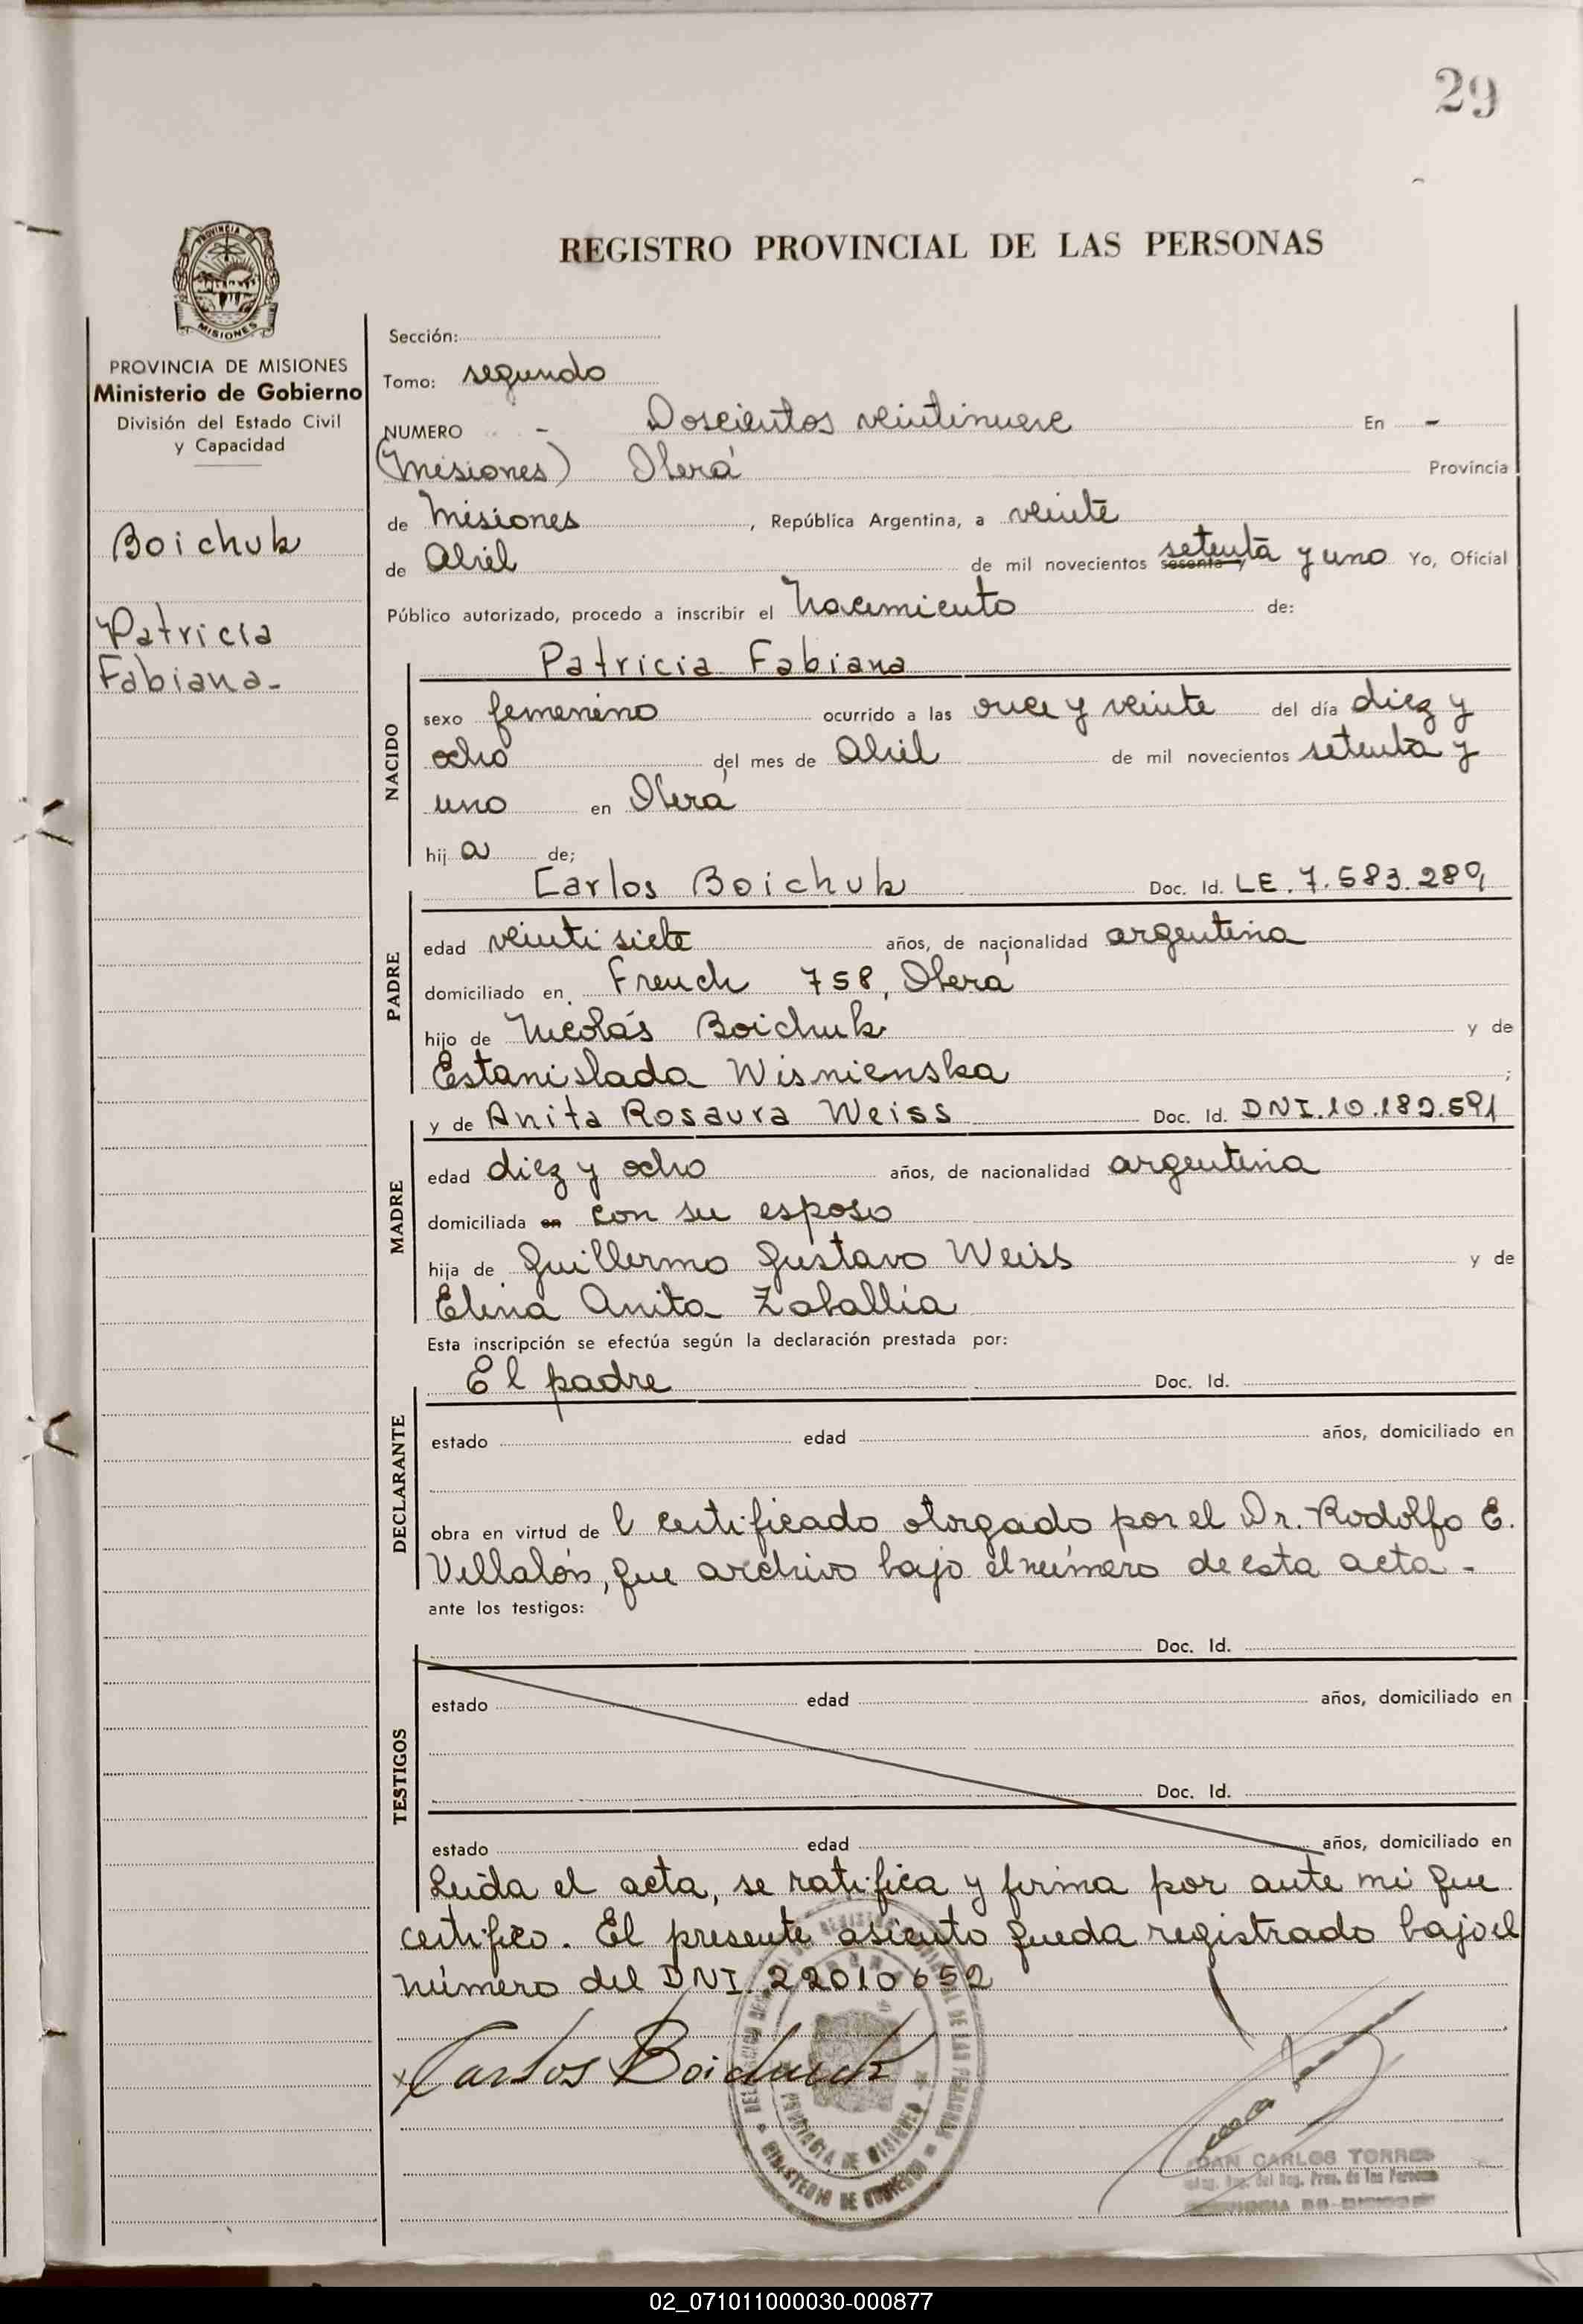 29
REGISTRO PROVINCIAL DE LAS PERSONAS
PROVINCIA DE MISIONES
Ministerio de Gobierno
División del Estado Civil
y Capacidad
Boichuk
Patricia
Fabiana-
Sección:
Tomo: segundo
NUMERO - Doscientos veintinueve En -
(Misiones) Oberá Provincia
de Misiones, República Argentina, a veinte
de Abril de mil novecientos sesenta y setenta y uno Yo, Oficial
Público autorizado, procedo a inscribir el Nacimiento de:
NACIDO
Patricia Fabiana
sexo femenino ocurrido a las once y veinte del día diez y
ocho del mes de Abril de mil novecientos setenta y
uno en Oberá
hij a de;
PADRE
Carlos Boichuk Doc. Id. LE. 7.583.289
edad veinti siete años, de nacionalidad argentina
domiciliado en French 758, Oberá
hijo de Nicolás Boichuk y de
Estanislada Wisnienska;
MADRE
y de Anita Rosaura Weiss Doc. Id. DNI.10.189.591
edad diez y ocho años, de nacionalidad argentina
domiciliada en con su esposo
hija de Guillermo Gustavo Weiss y de
Elena Anita Zaballia
Esta inscripción se efectúa según la declaración prestada por:
DECLARANTE
El padre Doc. Id.
estado edad años, domiciliado en
obra en virtud de l certificado otorgado por el Dr. Rodolfo E.
Villalón, que archivo bajo el número de esta acta -
ante los testigos:
TESTIGOS
Doc. Id.
estado edad años, domiciliado en
Doc. Id.
estado edad años, domiciliado en
Leida el acta, se ratifica y firma por ante mi que
certifico. El presente asiento queda registrado bajo el
número del DNI. 22010652
Carlos Boichuk
PROVINCIA DE MISIONES
MINISTERIO DE GOBIERNO
JUAN CARLOS TORRES
02_071011000030-000877